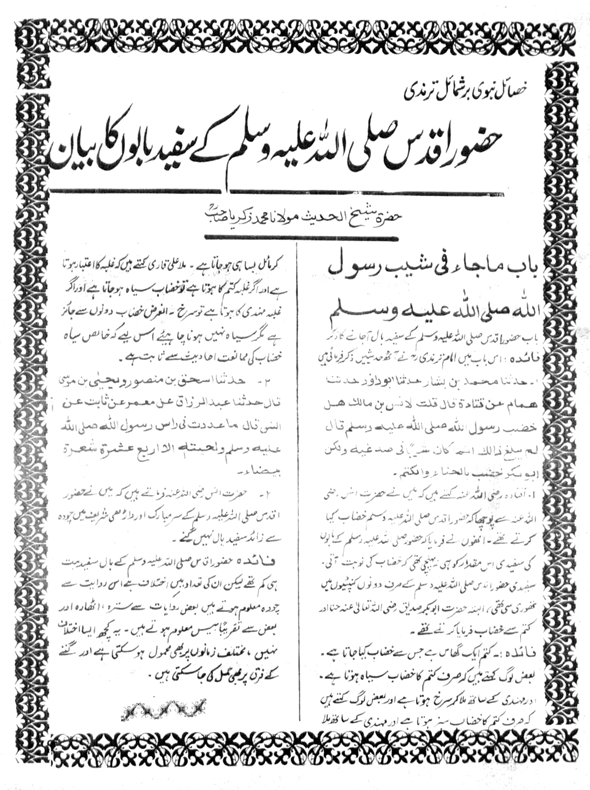 خصائل نبوی بر شمائل ترمذی
حضور اقدس صلی اللہ علیہ وسلم کے سفید بالوں کا بیان
حضرة شیخ الحدیث مولانا محمد زکریا صاحب
باب ماجاء فی شیب رسول
الله صلی الله علیه وسلم
باب حضور اقدس صلی اللہ علیہ وسلم کے سفید بال آجانے کا ذکر
فائدہ : اس باب میں امام ترمذی نے آٹھ حدیثیں ذکر فرمائی ہیں
۱۔ حدثنا محمد بن بشار حدثنا ابوداؤد حدثنا
همام عن قتادة قال قلت لانس بن مالك هل
خضب رسول الله صلی الله علیه وسلم قال
لم يبلغ ذالك انما كان شيبا فی صدغیه ولكن
ابوبكر خضب بالحناء والكتم۔
۱۔ قتادہ رضی اللہ عنہ کہتے ہیں کہ میں نے حضرت انس رضی
اللہ عنہ سے پوچھا کہ حضور اقدس صلی اللہ علیہ وسلم خضاب کیا
کرتے تھے۔ انھوں نے فرمایا کہ حضور صلی اللہ علیہ وسلم کے بالوں
کی سفیدی اس مقدار کو ہی نہ پہنچی تھی کہ خضاب کی نوبت آتی،
سفیدی حضور اقدس صلی اللہ علیہ وسلم کے صرف دونوں کنپٹیوں میں
تھوڑی سی تھی، البتہ حضرت ابوبکر صدیق رضی اللہ تعالیٰ عنہ حنا اور
کتم سے خضاب فرمایا کرتے تھے۔
فائدہ :۔ کتم ایک گھاس ہے جس سے خضاب کیا جاتا ہے۔
بعض لوگ کہتے ہیں کہ صرف کتم کا خضاب سیاہ ہوتا ہے۔
اور مہندی کے ساتھ ملا کر سرخ ہوتا ہے اور بعض لوگ کہتے ہیں
کہ صرف کتم کا خضاب سبز ہوتا ہے اور مہندی کے ساتھ ملا
کر مائل بسیاہی ہو جاتا ہے۔ ملا علی قاری کہتے ہیں کہ غلبہ کا اعتبار ہوتا
ہے اور اگر غلبہ کتم کا ہوتا ہے تو خضاب سیاہ ہو جاتا ہے اور اگر
غلبہ مہندی کا ہوتا ہے تو سرخ ۔ الغرض خضاب دونوں سے جائز
ہے مگر سیاہ نہیں ہونا چاہیئے اس لیے کہ خالص سیاہ
خضاب کی ممانعت احادیث سے ثابت ہے۔
۲۔ حدثنا اسحق بن منصور ویحیی بن موسی
قال حدثنا عبد الرزاق عن معمر عن ثابت عن
انس قال ما عددت فی رأس رسول الله صلی الله
علیه وسلم ولحیته الا اربع عشرة شعرة
بیضاء۔
۲۔ حضرت انس رضی اللہ عنہ فرماتے ہیں کہ میں نے حضور
اقدس صلی اللہ علیہ وسلم کے سر مبارک اور داڑھی شریف میں چودہ
سے زائد سفید بال نہیں گنے۔
فائدہ حضور اقدس صلی اللہ علیہ وسلم کے بال سفید بہت
ہی کم تھے لیکن ان کی تعداد میں اختلاف ہے اس روایت سے
چودہ معلوم ہوتے ہیں بعض روایات سے سترہ، اٹھارہ اور
بعض سے تقریبا بیس معلوم ہوتے ہیں۔ یہ کچھ ایسا اختلاف
نہیں، مختلف زمانوں پر بھی محمول ہو سکتی ہے اور گننے
کے فرق پر بھی حمل کی جا سکتی ہیں۔